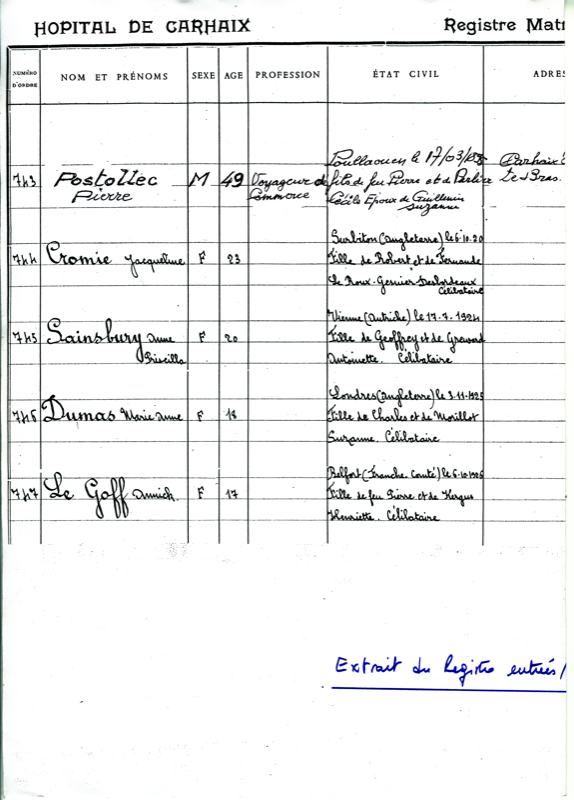 HOPITAL DE CARHAIX Registre Matr
NUMÉRO D'ORDRE NOM ET PRÉNOMS SEXE AGE PROFESSION ÉTAT CIVIL ADRES
Poullaouen le 17/03/ Carhaix
743 Postollec M 49 Voyageur de fils de feu Pierre et de
Pierre Commerce Cécile Epoux de Guillemin
Suzanne
Surbiton (Angleterre) le 6.10.20
744 Cromie Jacqueline F 23 Fille de Robert et de Fernande
Le Roux-Gernier-Desbordeaux
Célibataire
Vienne (Autriche) le 17.7.1924
745 Sainsbury Anne F 20 Fille de Geoffrey et de
Priscilla Antoinette. Célibataire
Londres (Angleterre) le 3.11.1925
746 Dumas Marie Anne F 18 Fille de Charles et de Morillot
Suzanne. Célibataire
Belfort (Franche. Comté) le 6.10.1926
747 Le Goff Annick F 17 Fille de feu Pierre et de Kergus
Henriette. Célibataire
Extrait du Registre entrées/